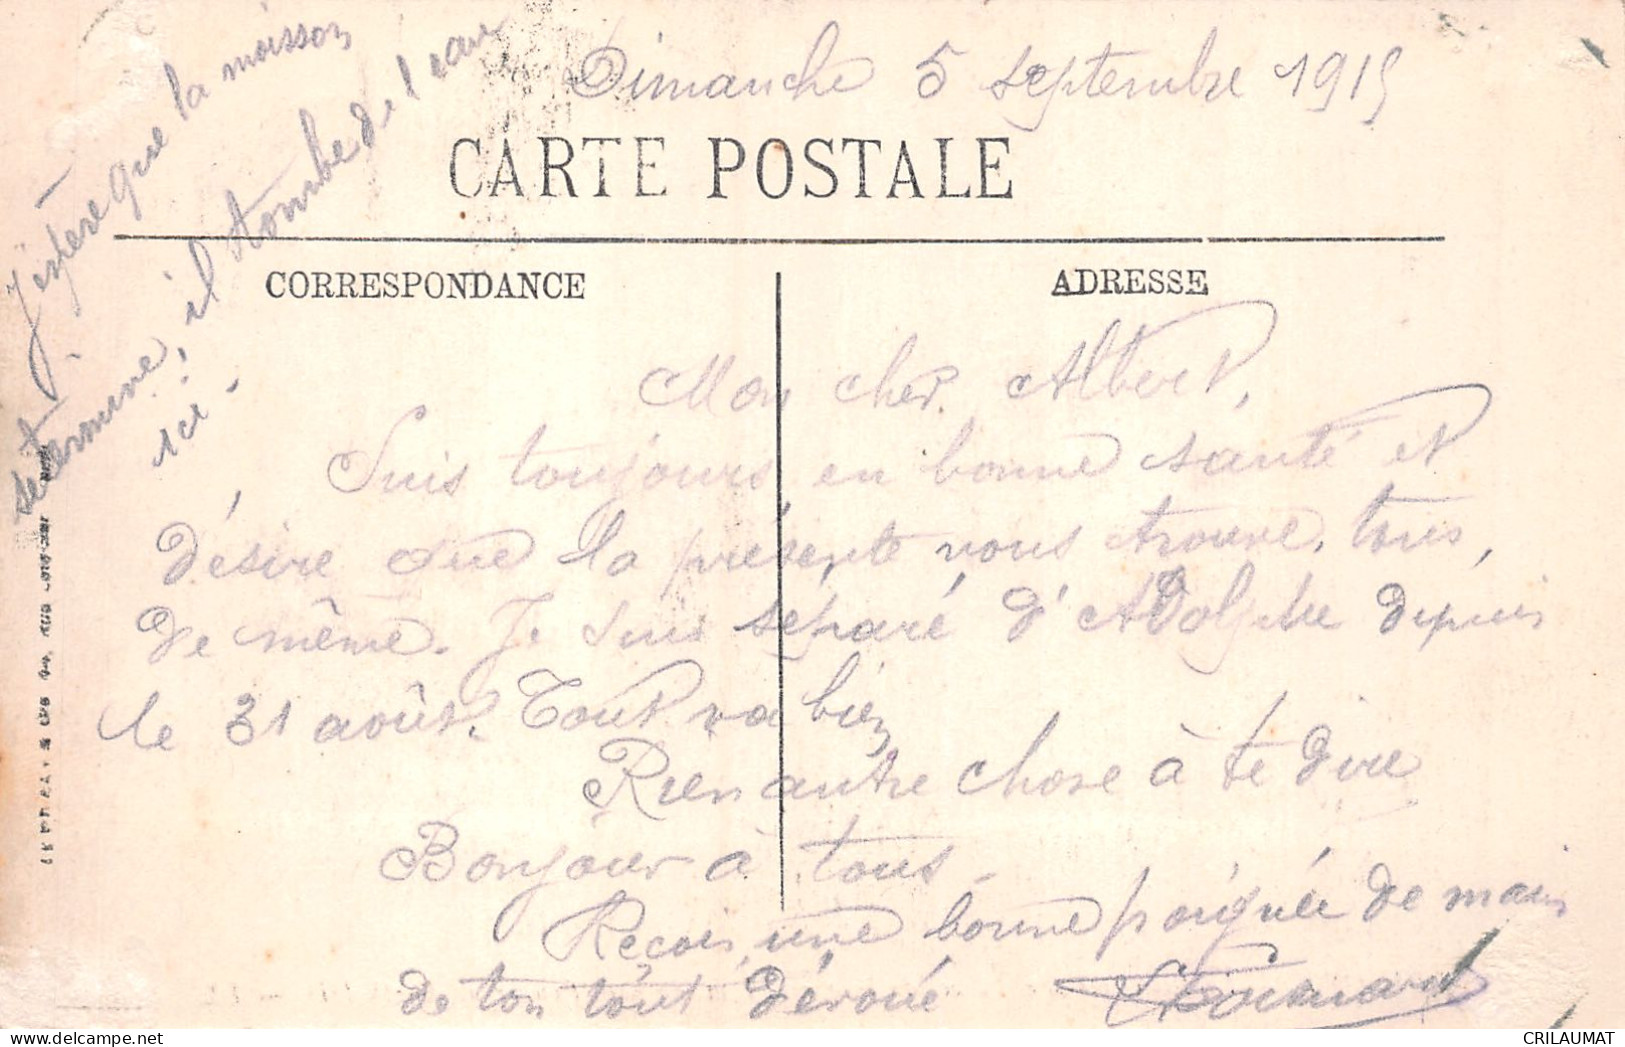 Dimanche 5 septembre 1915
CARTE POSTALE
CORRESPONDANCE
ADRESSE
J'espère que la moisson
se termine, il tombe de l'eau
ici -
Mon cher Albert,
Suis toujours en bonne santé et
désire que la présente vous trouve, tous,
de même. Je suis séparé d'Adolphe depuis
le 31 août. Tout va bien
Rien autre chose à te dire
Bonjour à tous -
Reçois une bonne poignée de main
de ton tout dévoué
CRILAUMAT